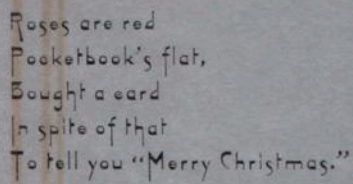 Roses are red
Pocketbook's flat,
Bought a card
In spite of that
To tell you “Merry Christmas.”